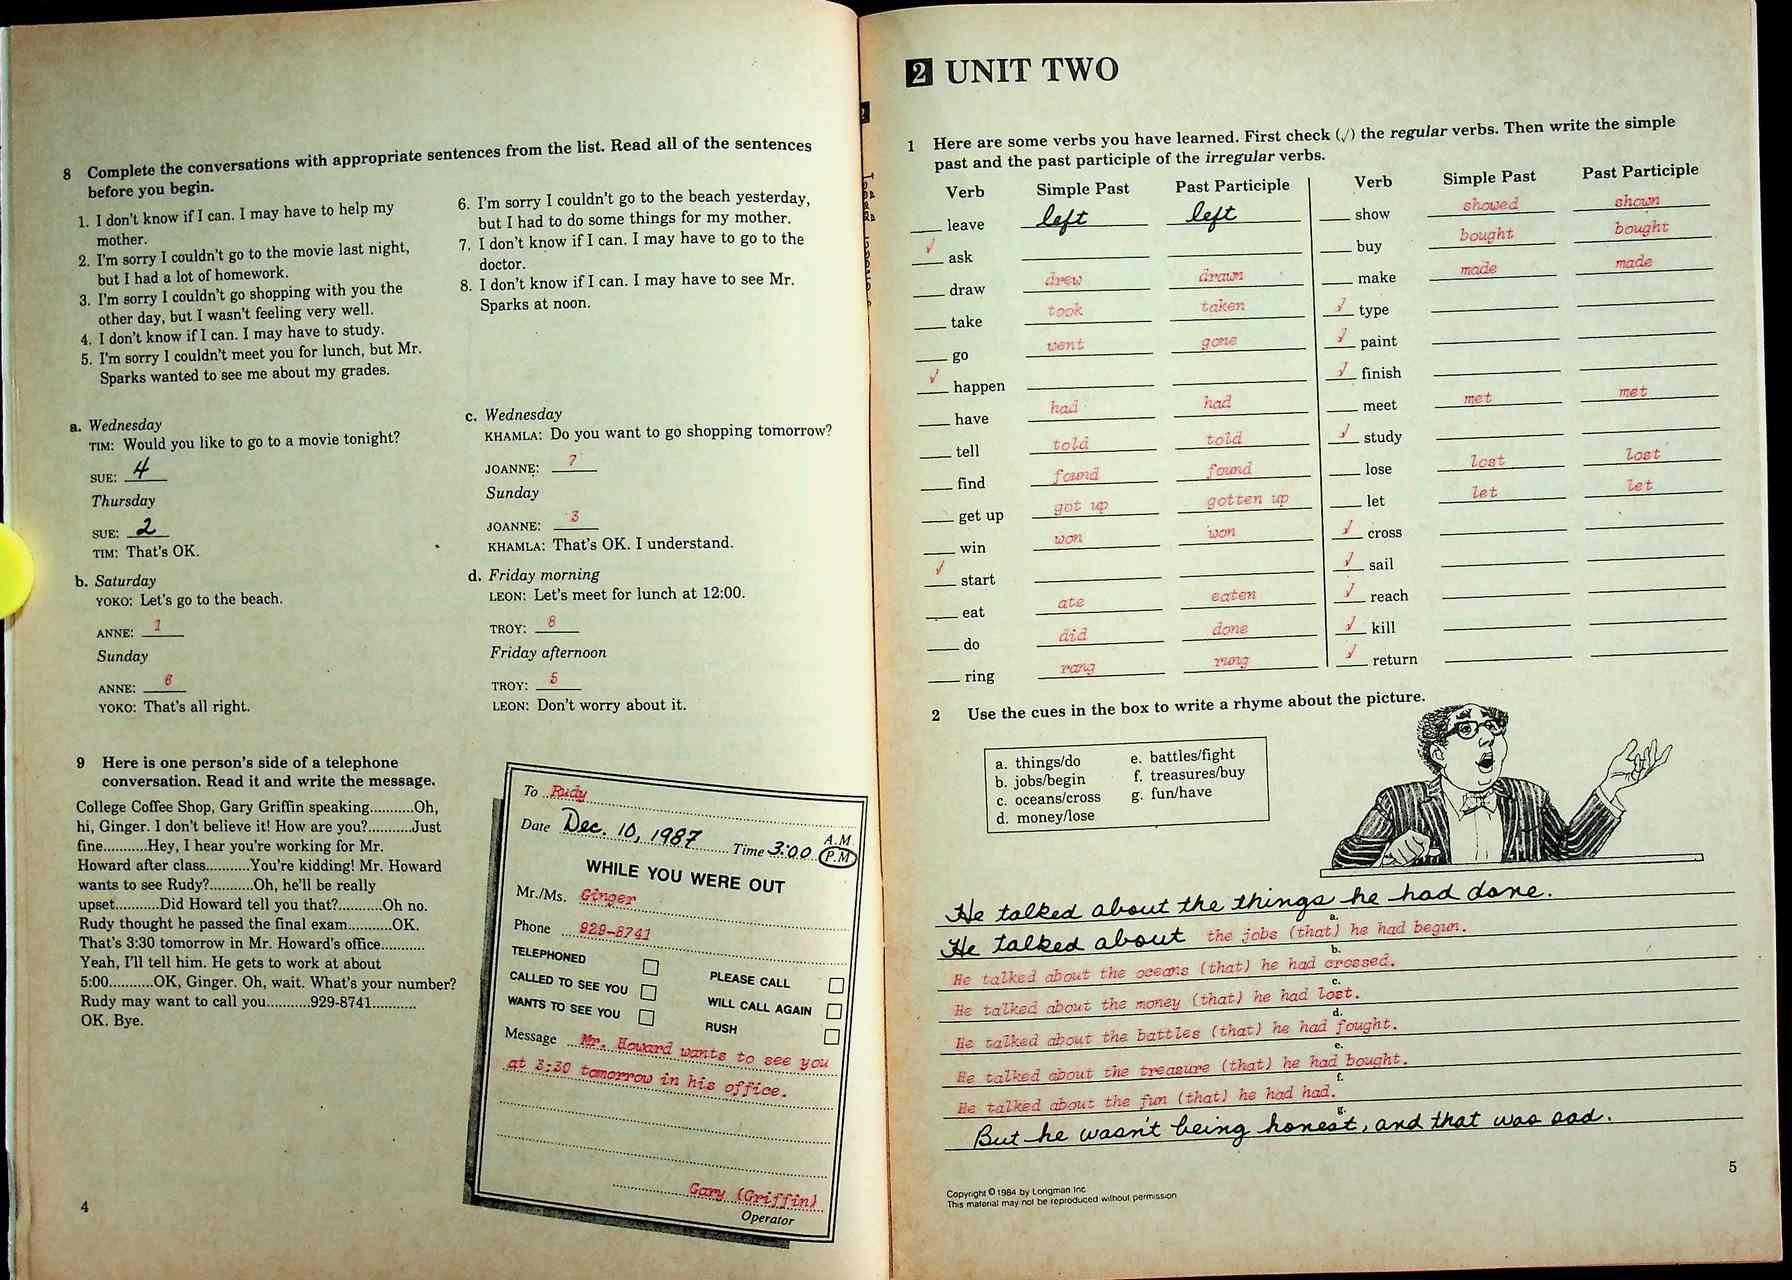 8 Complete the conversations with appropriate sentences from the list. Read all of the sentences
before you begin.
1. I don't know if I can. I may have to help my
mother.
2. I'm sorry I couldn't go to the movie last night,
but I had a lot of homework.
3. I'm sorry I couldn't go shopping with you the
other day, but I wasn't feeling very well.
4. I don't know if I can. I may have to study.
5. I'm sorry I couldn't meet you for lunch, but Mr.
Sparks wanted to see me about my grades.
6. I'm sorry I couldn't go to the beach yesterday,
but I had to do some things for my mother.
7. I don't know if I can. I may have to go to the
doctor.
8. I don't know if I can. I may have to see Mr.
Sparks at noon.
a. Wednesday
TIM: Would you like to go to a movie tonight?
SUE: 4
Thursday
SUE: 2
TIM: That's OK.
b. Saturday
YOKO: Let's go to the beach.
ANNE: 1
Sunday
ANNE: 6
YOKO: That's all right.
c. Wednesday
KHAMLA: Do you want to go shopping tomorrow?
JOANNE: 7
Sunday
JOANNE: 3
KHAMLA: That's OK. I understand.
d. Friday morning
LEON: Let's meet for lunch at 12:00.
TROY: 8
Friday afternoon
TROY: 5
LEON: Don't worry about it.
9 Here is one person's side of a telephone
conversation. Read it and write the message.
College Coffee Shop, Gary Griffin speaking..........Oh,
hi, Ginger. I don't believe it! How are you?..........Just
fine..........Hey, I hear you're working for Mr.
Howard after class..........You're kidding! Mr. Howard
wants to see Rudy?..........Oh, he'll be really
upset..........Did Howard tell you that?..........Oh no.
Rudy thought he passed the final exam..........OK.
That's 3:30 tomorrow in Mr. Howard's office..........
Yeah, I'll tell him. He gets to work at about
5:00..........OK, Ginger. Oh, wait. What's your number?
Rudy may want to call you..........929-8741..........
OK. Bye.
To Rudy
Date Dec. 10, 1987 Time 3:00 A.M
P.M
WHILE YOU WERE OUT
Mr./Ms. Ginger
Phone 929-8741
TELEPHONED
CALLED TO SEE YOU
WANTS TO SEE YOU
PLEASE CALL
WILL CALL AGAIN
RUSH
Message Mr. Howard wants to see you
at 3:30 tomorrow in his office.
Gary (Griffin)
Operator
4
2 UNIT TWO
1 Here are some verbs you have learned. First check (√) the regular verbs. Then write the simple
past and the past participle of the irregular verbs.
Verb Simple Past Past Participle
leave left left
√ ask
draw drew drawn
take took taken
go went gone
√ happen
have had had
tell told told
find found found
get up got up gotten up
win won won
√ start
eat ate eaten
do did done
ring rang rung
Verb Simple Past Past Participle
show showed shown
buy bought bought
make made made
√ type
√ paint
√ finish
meet met met
√ study
lose lost lost
let let let
√ cross
√ sail
√ reach
√ kill
√ return
2 Use the cues in the box to write a rhyme about the picture.
a. things/do
b. jobs/begin
c. oceans/cross
d. money/lose
e. battles/fight
f. treasures/buy
g. fun/have
He talked about the things he had done.
a.
He talked about the jobs (that) he had begun.
b.
He talked about the oceans (that) he had crossed.
c.
He talked about the money (that) he had lost.
d.
He talked about the battles (that) he had fought.
e.
He talked about the treasure (that) he had bought.
f.
He talked about the fun (that) he had had.
g.
But he wasn't being honest, and that was sad.
Copyright © 1984 by Longman Inc
This material may not be reproduced without permission
5